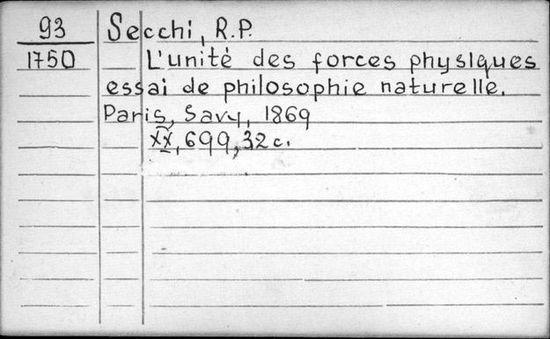 93 Secchi, R.P.
1750 L'unité des forces physiques
essai de philosophie naturelle.
Paris, Savy, 1869
XX, 699, 32 c.